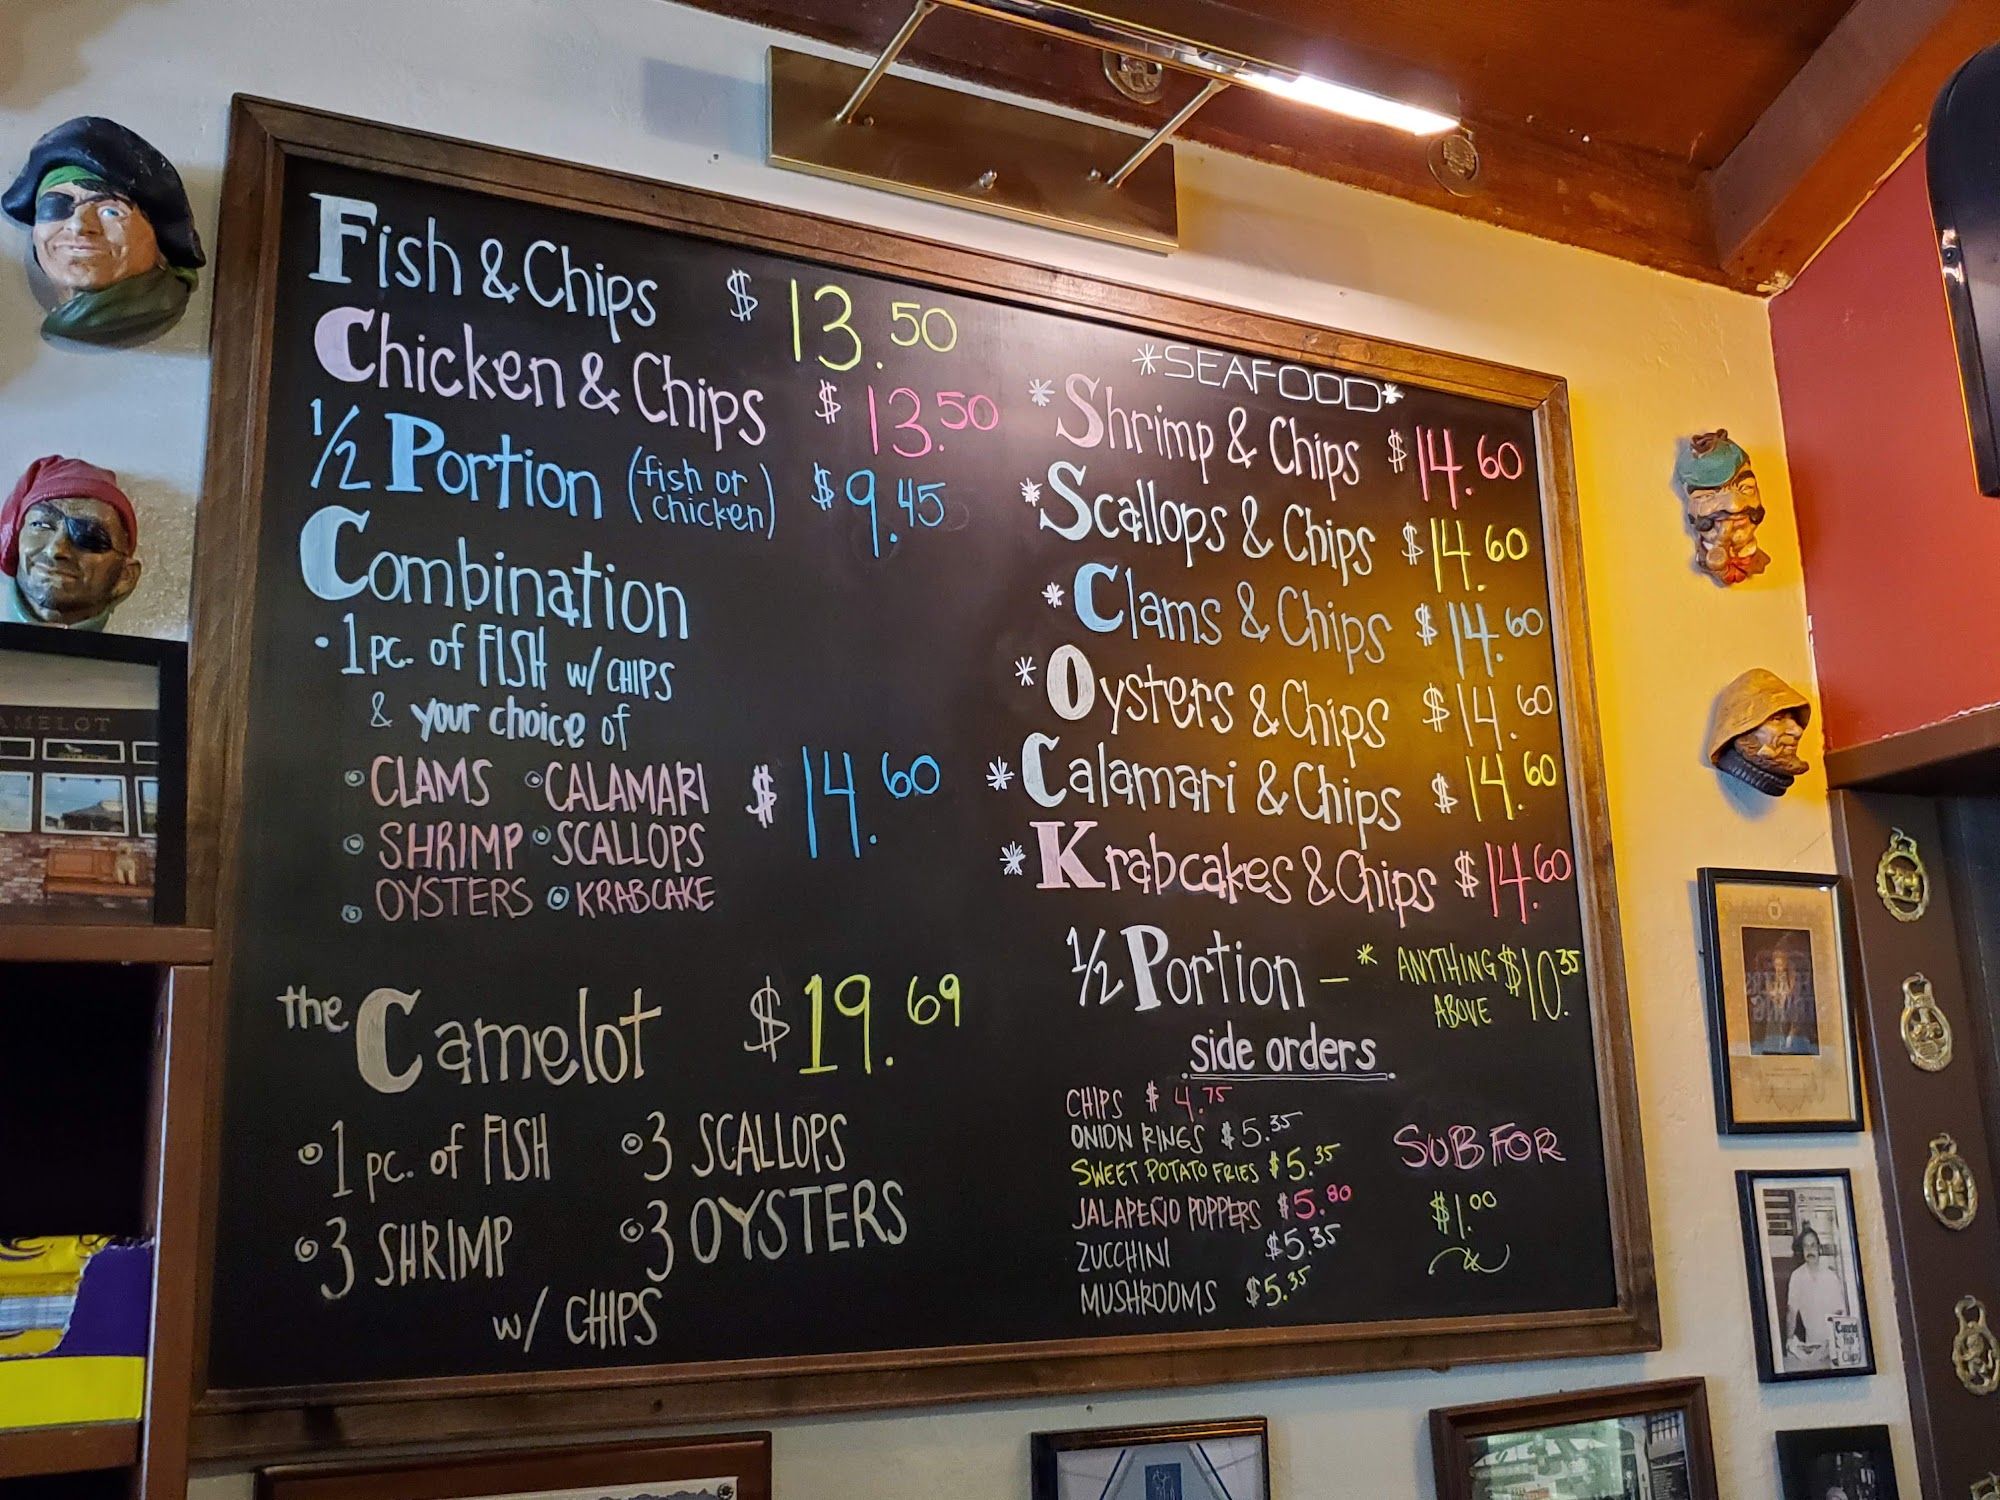 Fish & Chips $13.50
Chicken & Chips $13.50
1/2 Portion (fish or chicken) $9.45
Combination
• 1 pc. of FISH w/ CHIPS
& your choice of
• CLAMS • CALAMARI $14.60
• SHRIMP • SCALLOPS
• OYSTERS • KRABCAKE
the Camelot $19.69
• 1 pc. of FISH • 3 SCALLOPS
• 3 SHRIMP • 3 OYSTERS
w/ CHIPS
*SEAFOOD*
*Shrimp & Chips $14.60
*Scallops & Chips $14.60
*Clams & Chips $14.60
*Oysters & Chips $14.60
*Calamari & Chips $14.60
*Krabcakes & Chips $14.60
1/2 Portion – * ANYTHING ABOVE $10.35
side orders
CHIPS $4.75
ONION RINGS $5.35
SWEET POTATO FRIES $5.35
JALAPEÑO POPPERS $5.80
ZUCCHINI $5.35
MUSHROOMS $5.35
SUB FOR
$1.00
AMELOT